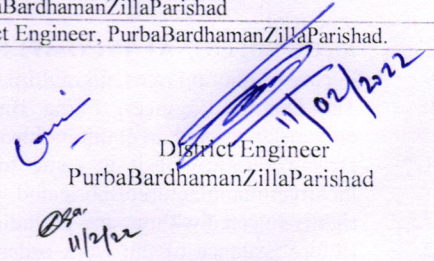 aBardhamanZillaParishad
ct Engineer, PurbaBardhamanZillaParishad.
11/02/2022
District Engineer
PurbaBardhamanZillaParishad
11/2/22